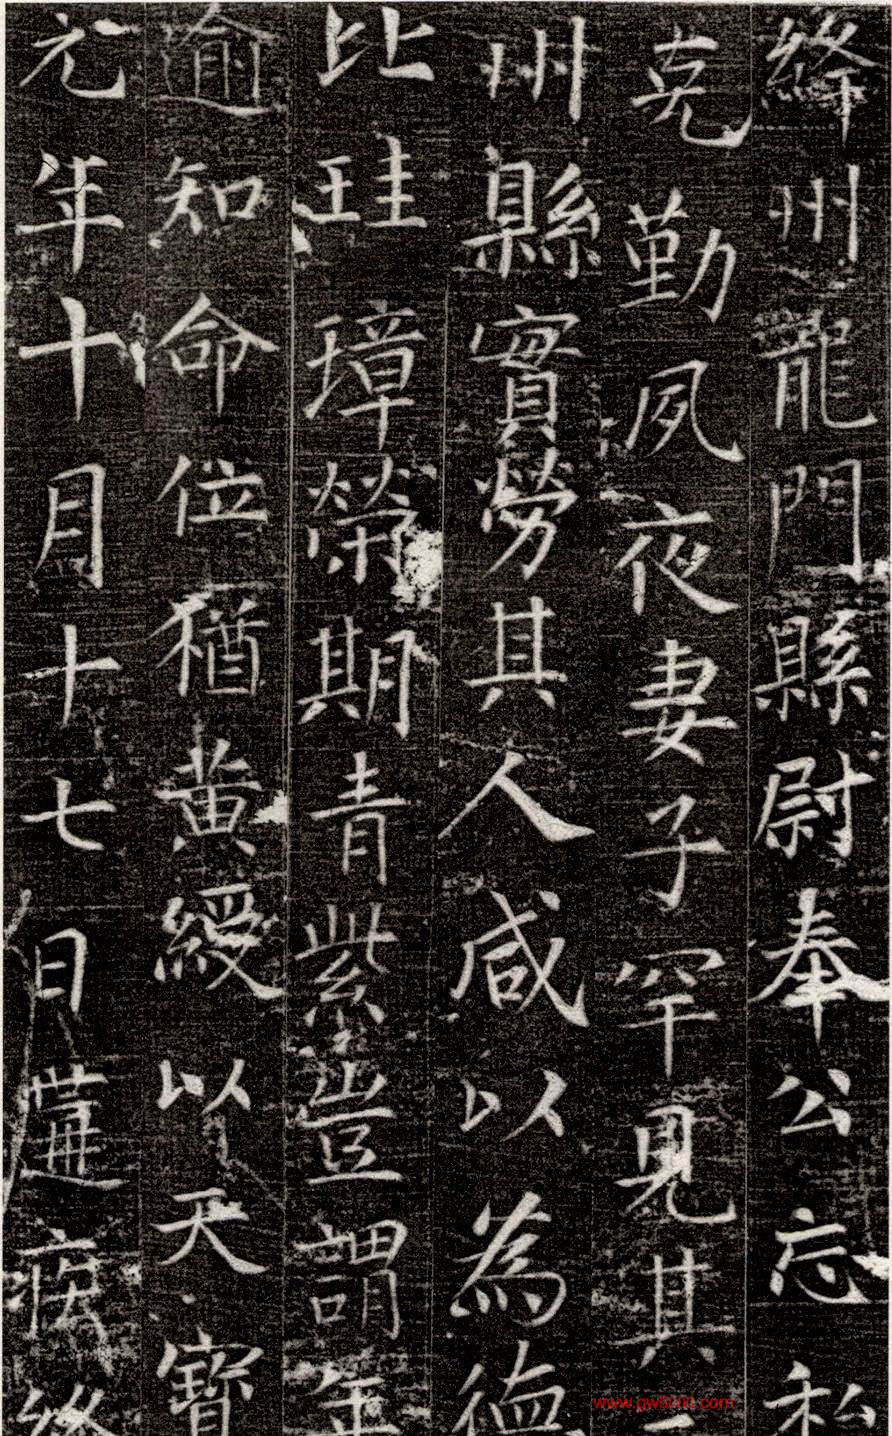 絳州龍門縣尉奉公忘私
克勤夙夜妻子罕見其
州縣實勞其人咸以為德
比珪璋榮期青紫豈謂年
逾知命位猶黃綬以天寶
元年十月十七日遘疾終
www.gw5000.com